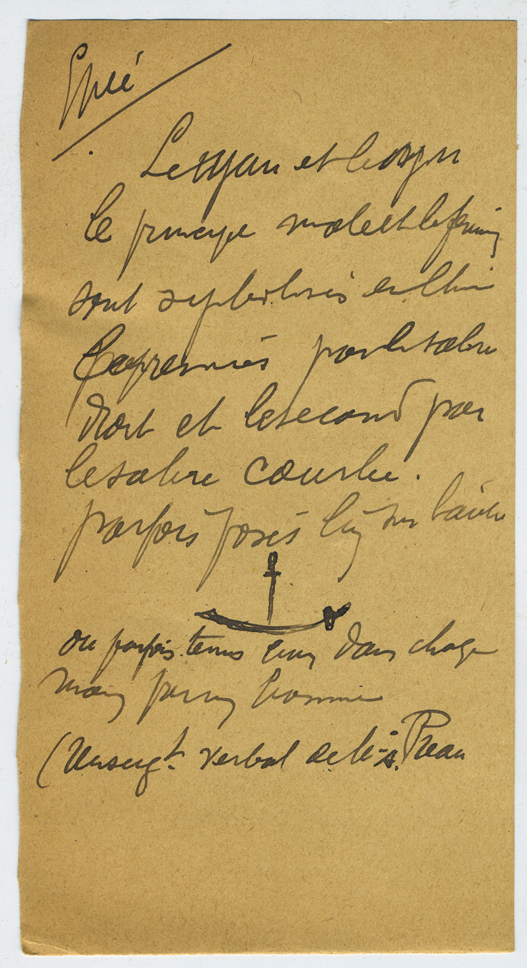 Epée
Le yan et le yn
le principe male et le femin
sont symbolisés en Chine
le premier par le sabre
droit et le second par
le sabre courbe.
parfois posés l'un sur l'autre
ou parfois tenus l'un dans chaque
main par un homme
(Renseigt verbal de Preau